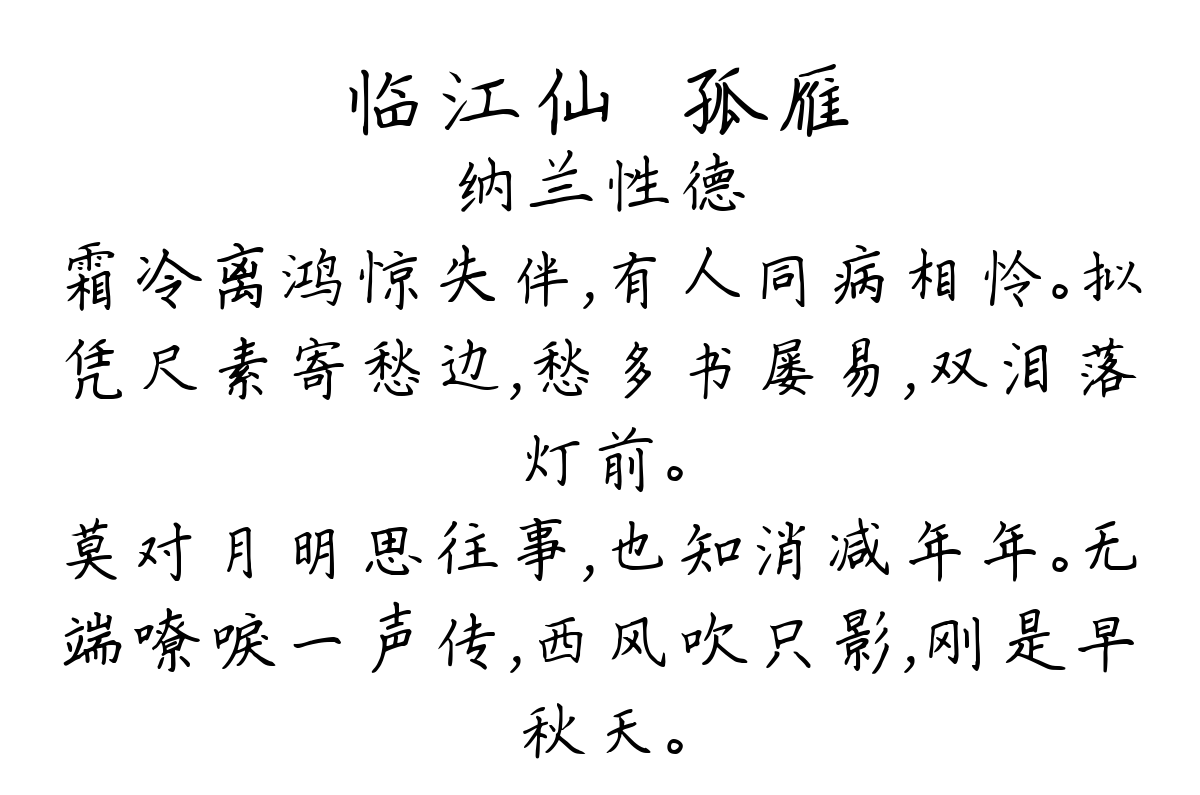 临江仙 孤雁
纳兰性德
霜冷离鸿惊失伴,有人同病相怜。拟
凭尺素寄愁边,愁多书屡易,双泪落
灯前。
莫对月明思往事,也知消减年年。无
端嘹唳一声传,西风吹只影,刚是早
秋天。